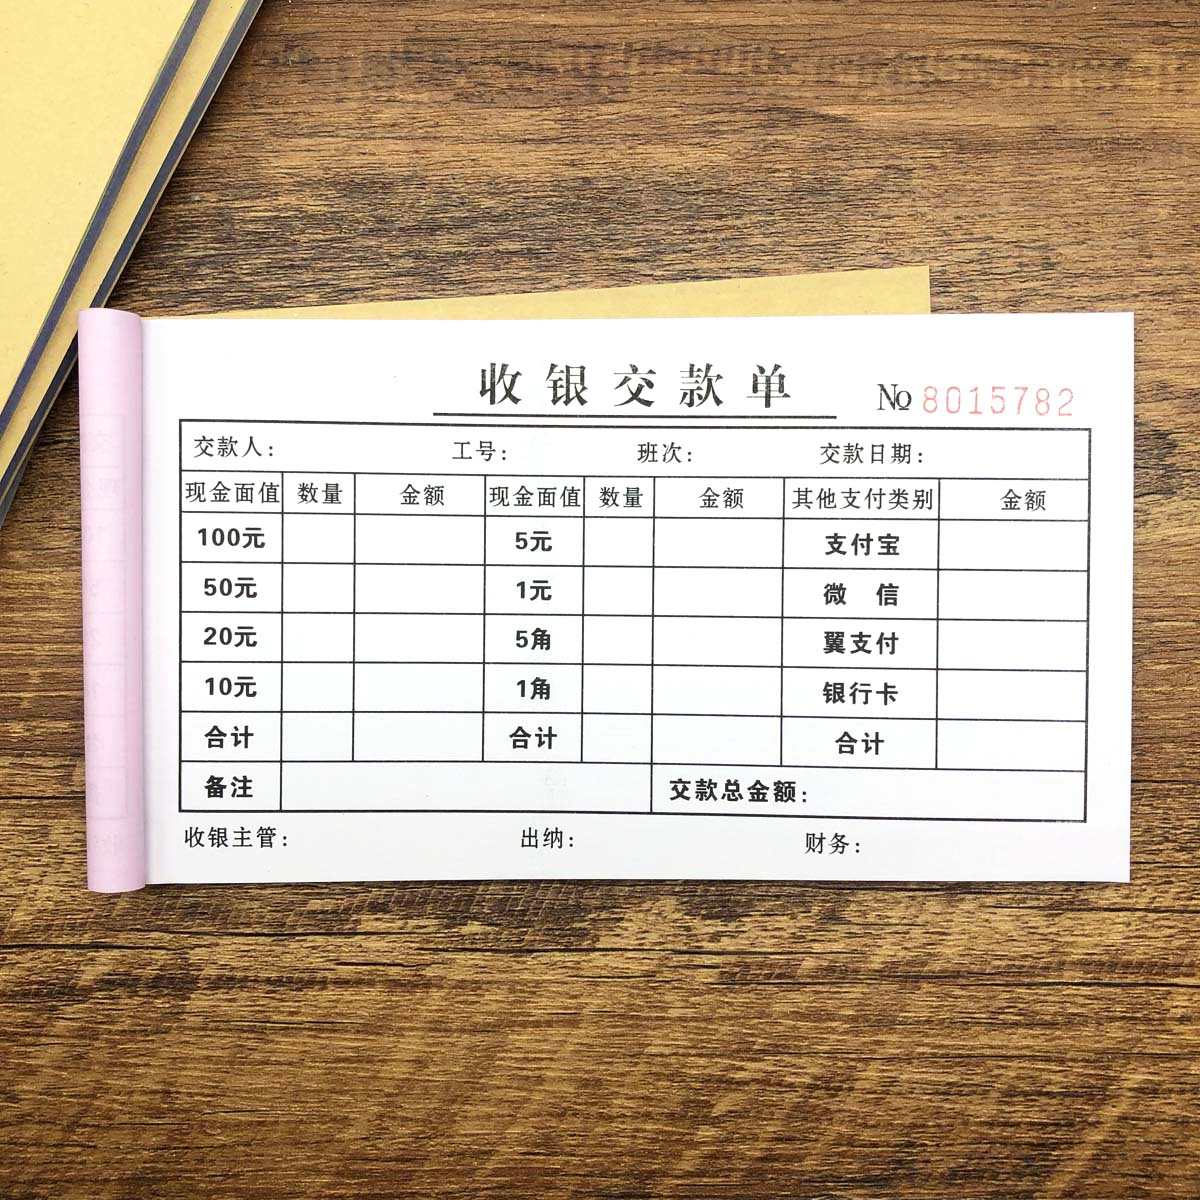 收银交款单 № 8015782
交款人： 工号： 班次： 交款日期：
现金面值 数量 金额 现金面值 数量 金额 其他支付类别 金额
100元 5元 支付宝
50元 1元 微 信
20元 5角 翼支付
10元 1角 银行卡
合计 合计 合计
备注 交款总金额：
收银主管： 出纳： 财务：